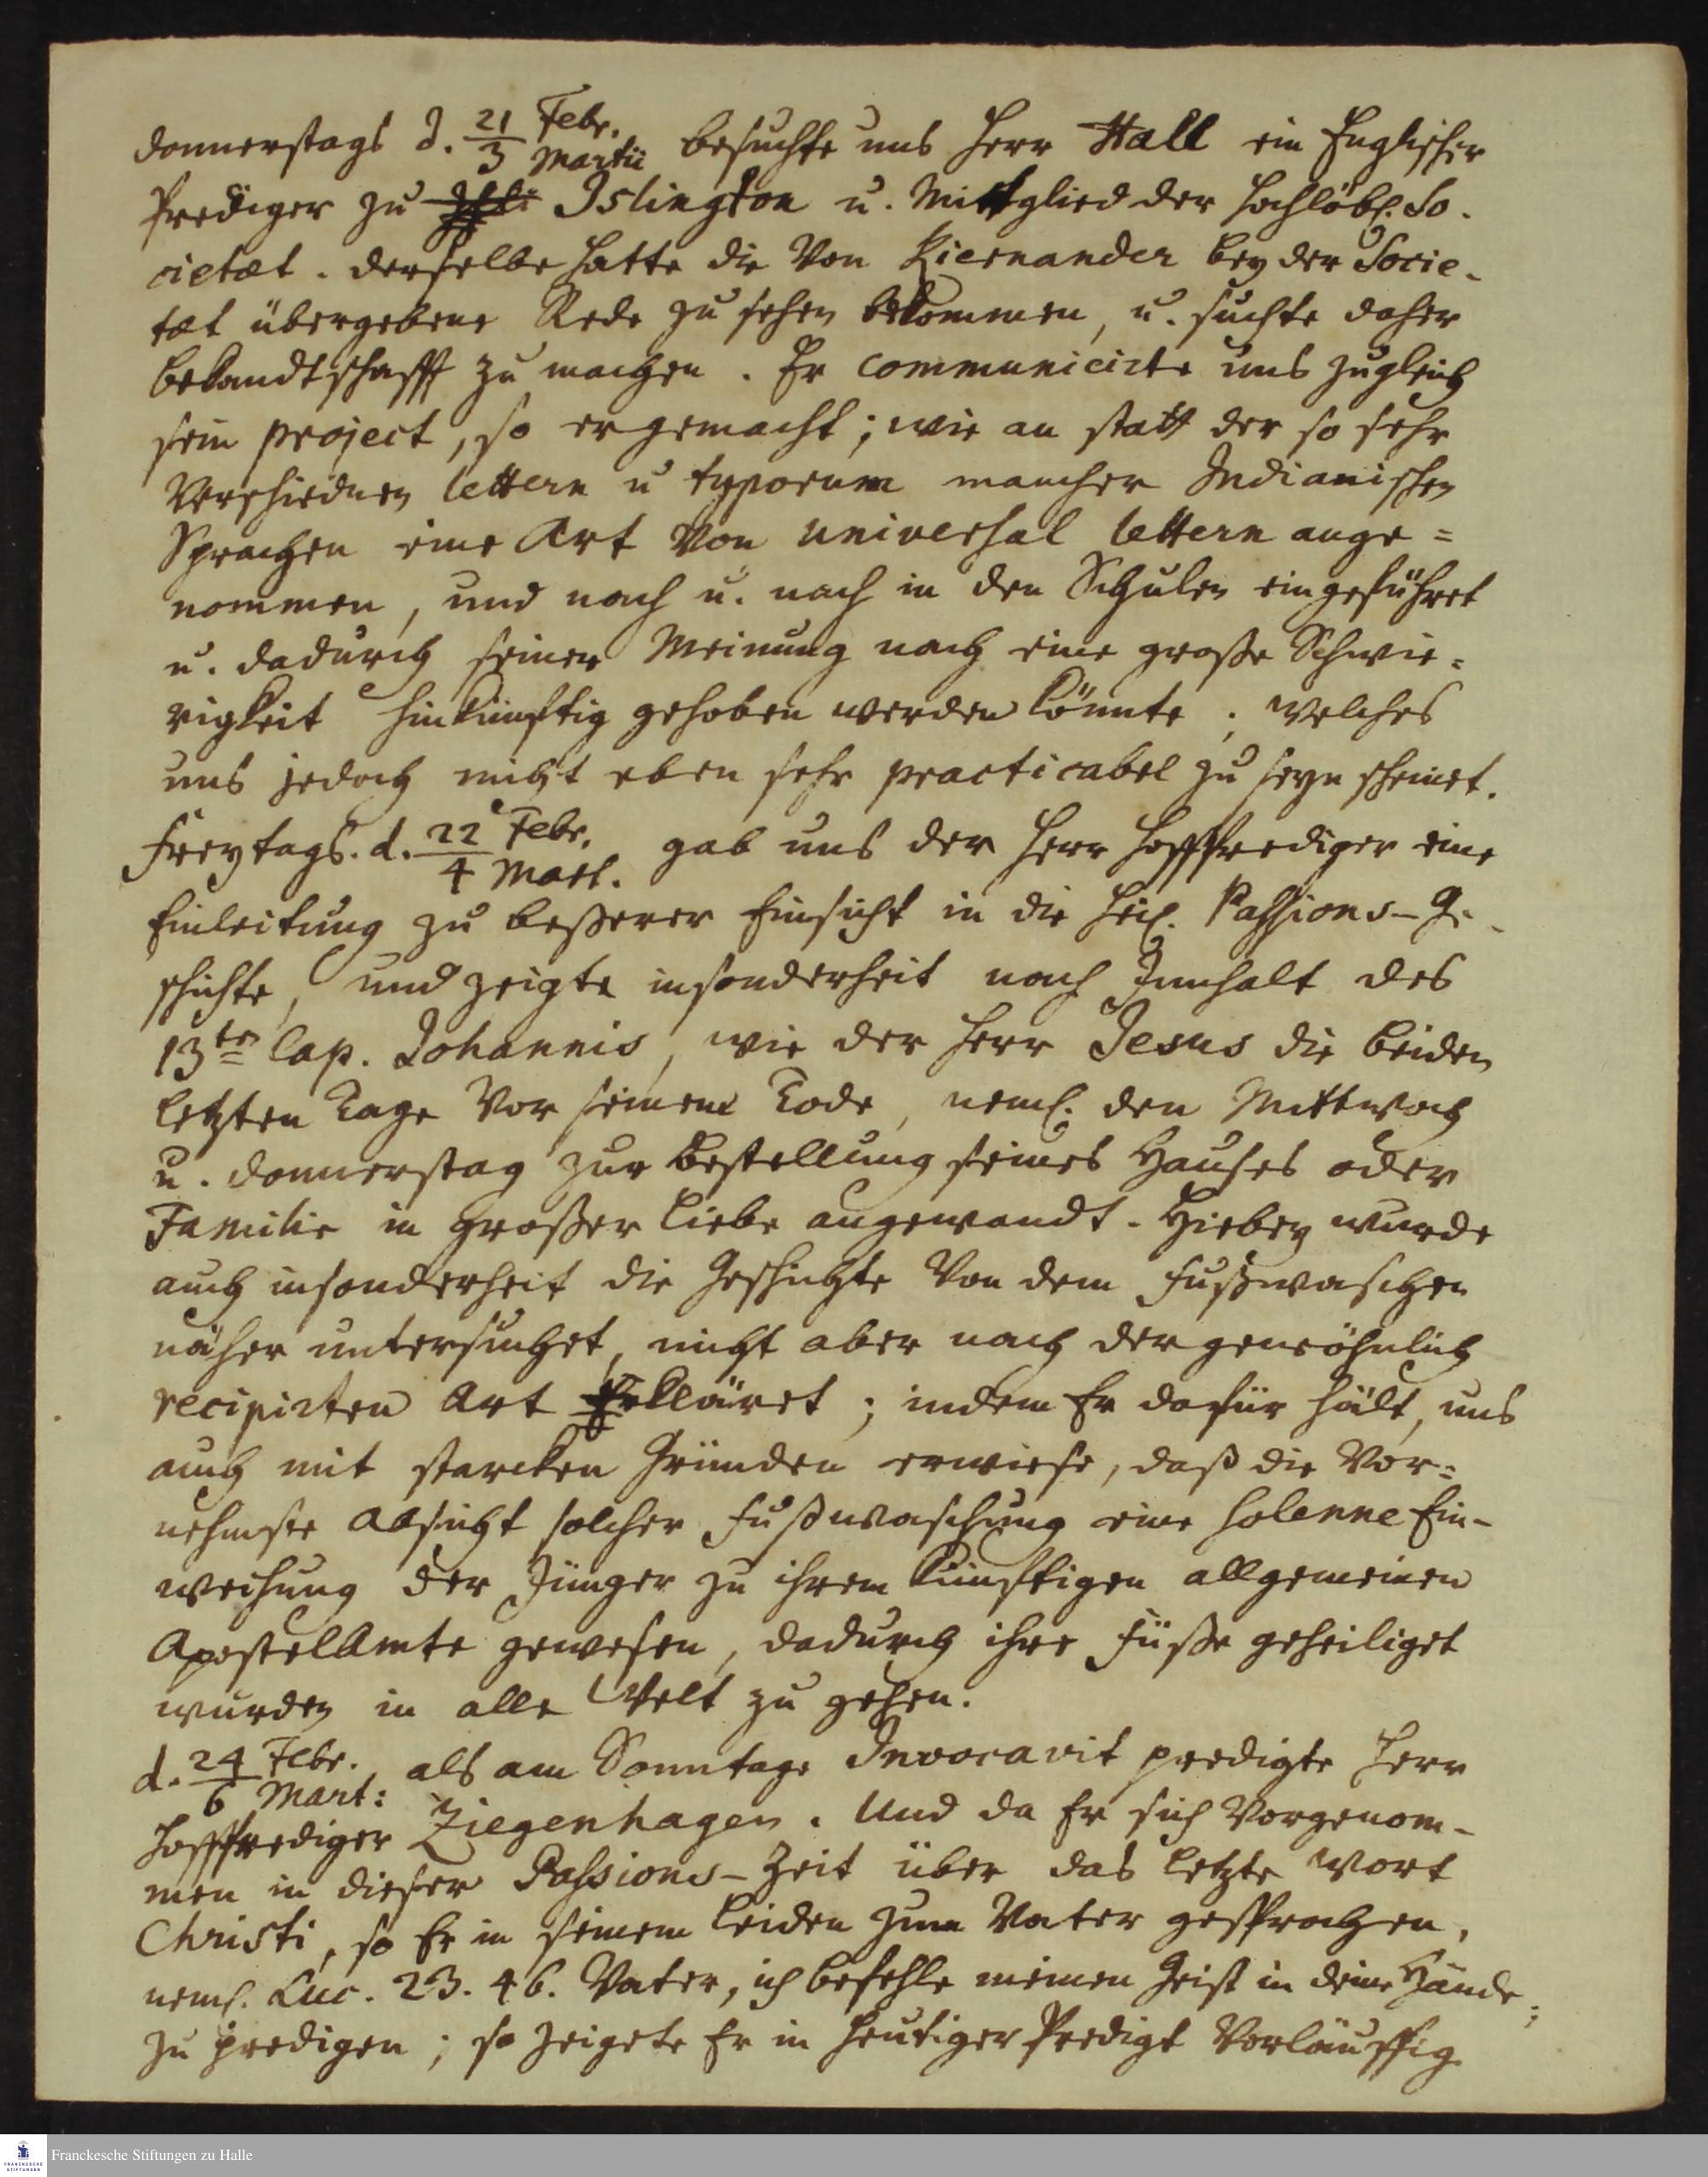 donnerstags d. 21 Febr. / 3 Martii besuchte uns Herr Hall ein Englischer
Prediger zu Isli Islington u. Mittglied der hochlöbl. So-
cietæt. derselbe hatte die von Kiernander bey der Socie-
tæt übergebene Rede zu sehen bekommen, u. suchte daher
bekandtschafft zu machen. Er communicirte uns zugleich
sein project, so er gemacht; wie an statt der so sehr
verschiednen lettern u typorum mancher Indianischen
Sprachen eine Art von universal lettern ange=
nommen, und nach u. nach in den Schulen eingeführet
u. dadurch seiner Meinung nach eine große Schwie=
rigkeit hinkünftig gehoben werden könnte; welches
uns jedoch nicht eben sehr practicabel zu seyn scheinet.
Freytags. d. 22 Febr. / 4 Mart. gab uns der Herr Hoffprediger eine
Einleitung zu beßerer Einsicht in die heil. Passions-Ge-
schichte, und zeigte insonderheit nach Innhalt des
13ten Cap. Johannis, wie der Herr Jesus die beiden
letzten Tage vor seinem Tode, neml. den Mittwoch
u. donnerstag zur Bestellung seines Hauses oder
Familie in großer Liebe angewandt. Hiebey wurde
auch insonderheit die Geschichte von dem Fußwaschen
näher untersuchet, nicht aber nach der gewöhnlich
recipirten Art erkläret; indem Er dafür hält, uns
auch mit starcken Gründen erwiese, daß die Vor=
nehmste Absicht solcher Fußwaschung eine solenne Ein-
weihung der Jünger zu ihrem künftigen allgemeinen
Apostelamte gewesen, dadurch ihre Füße geheiliget
wurden in alle Welt zu gehen.
d. 24 Febr. / 6 Mart: als am Sonntage Invocavit predigte Herr
Hoffprediger Ziegenhagen. Und da Er sich vorgenom-
men in dieser Passions-Zeit über das letzte Wort
Christi, so Er in seinem Leiden zum Vater gesprochen,
neml. Luc. 23. 46. Vater, ich befehle meinen Geist in deine Hände;
zu predigen; so zeigete Er in heutiger Predigt vorläuffig